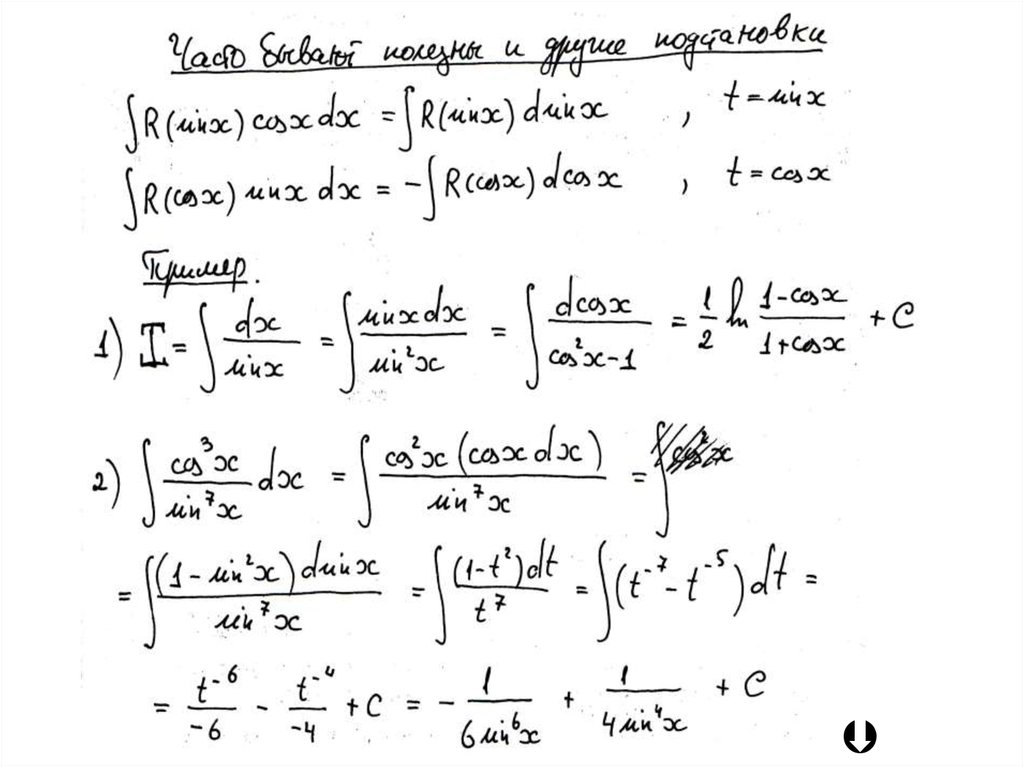 Часто бывают полезны и другие подстановки
∫R(sinx) cosx dx = ∫R(sinx) dsinx , t = sinx
∫R(cosx) sinx dx = -∫R(cosx) dcosx , t = cosx
Пример.
1) I = ∫ dx/sinx = ∫ sinx dx/sin²x = ∫ dcosx/(cos²x-1) = 1/2 ln (1-cosx)/(1+cosx) + C
2) ∫ cos³x/sin⁷x dx = ∫ cos²x (cosx dx)/sin⁷x = ∫
= ∫ (1-sin²x) dsinx/sin⁷x = ∫ (1-t²)dt/t⁷ = ∫(t⁻⁷ - t⁻⁵) dt =
= t⁻⁶/-6 - t⁻⁴/-4 + C = - 1/(6 sin⁶x) + 1/(4 sin⁴x) + C